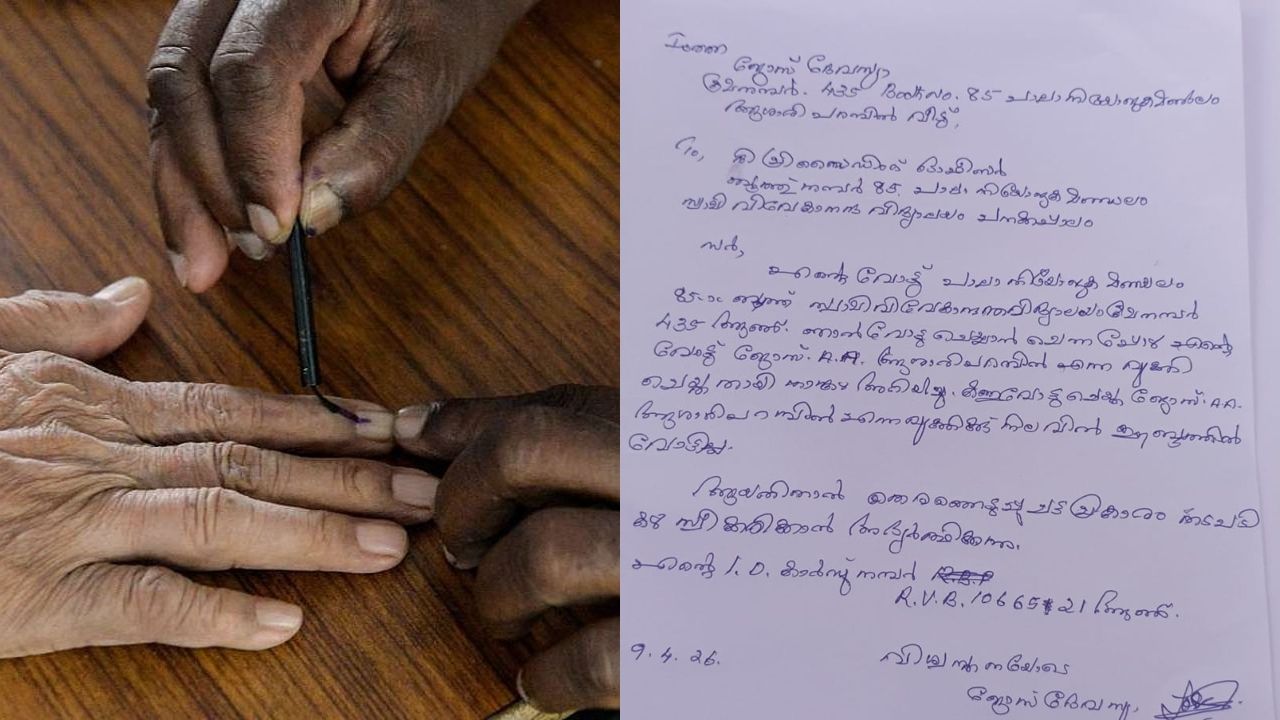 ജോസ് ദേവസ്യാ
ക്രമനമ്പർ. 435 Booth No. 85 പാലാ നിയോജകമണ്ഡലം
ആശാരിപറമ്പിൽ വീട്ട്,
To,
ശ്രീ പ്രിസൈഡിങ് ഓഫീസർ
ബൂത്ത് നമ്പർ 85 പാലാ നിയോജകമണ്ഡലം
സ്വാമി വിവേകാനന്ദ വിദ്യാലയം പനക്കപ്പാലം
സർ,
എന്റെ വോട്ട് പാലാ നിയോജക മണ്ഡലം
85-ാം ബൂത്ത് സ്വാമിവിവേകാനന്ദവിദ്യാലയം ക്രമനമ്പർ
435 ആണ്. ഞാൻ വോട്ടു ചെയ്യാൻ ചെന്നപ്പോൾ എന്റെ
വോട്ട് ജോസ്. A.A. ആശാരിപറമ്പിൽ എന്ന വ്യക്തി
ചെയ്തതായി അറിയിച്ചു. വോട്ടു ചെയ്ത ജോസ്. A.A.
ആശാരിപറമ്പിൽ എന്നവ്യക്തിക്ക് നിലവിൽ ഈ ബൂത്തിൽ
വോട്ടില്ല.
ആയതിനാൽ തെരഞ്ഞെടുപ്പു ചട്ടപ്രകാരം നടപടി
കൾ സ്വീകരിക്കാൻ അഭ്യർത്ഥിക്കുന്നു.
എന്റെ I.D. കാർഡ് നമ്പർ
R.V.B. 1066521 ആണ്.
9.4.26.
വിശ്വസ്തതയോടെ
ജോസ് ദേവസ്യ,